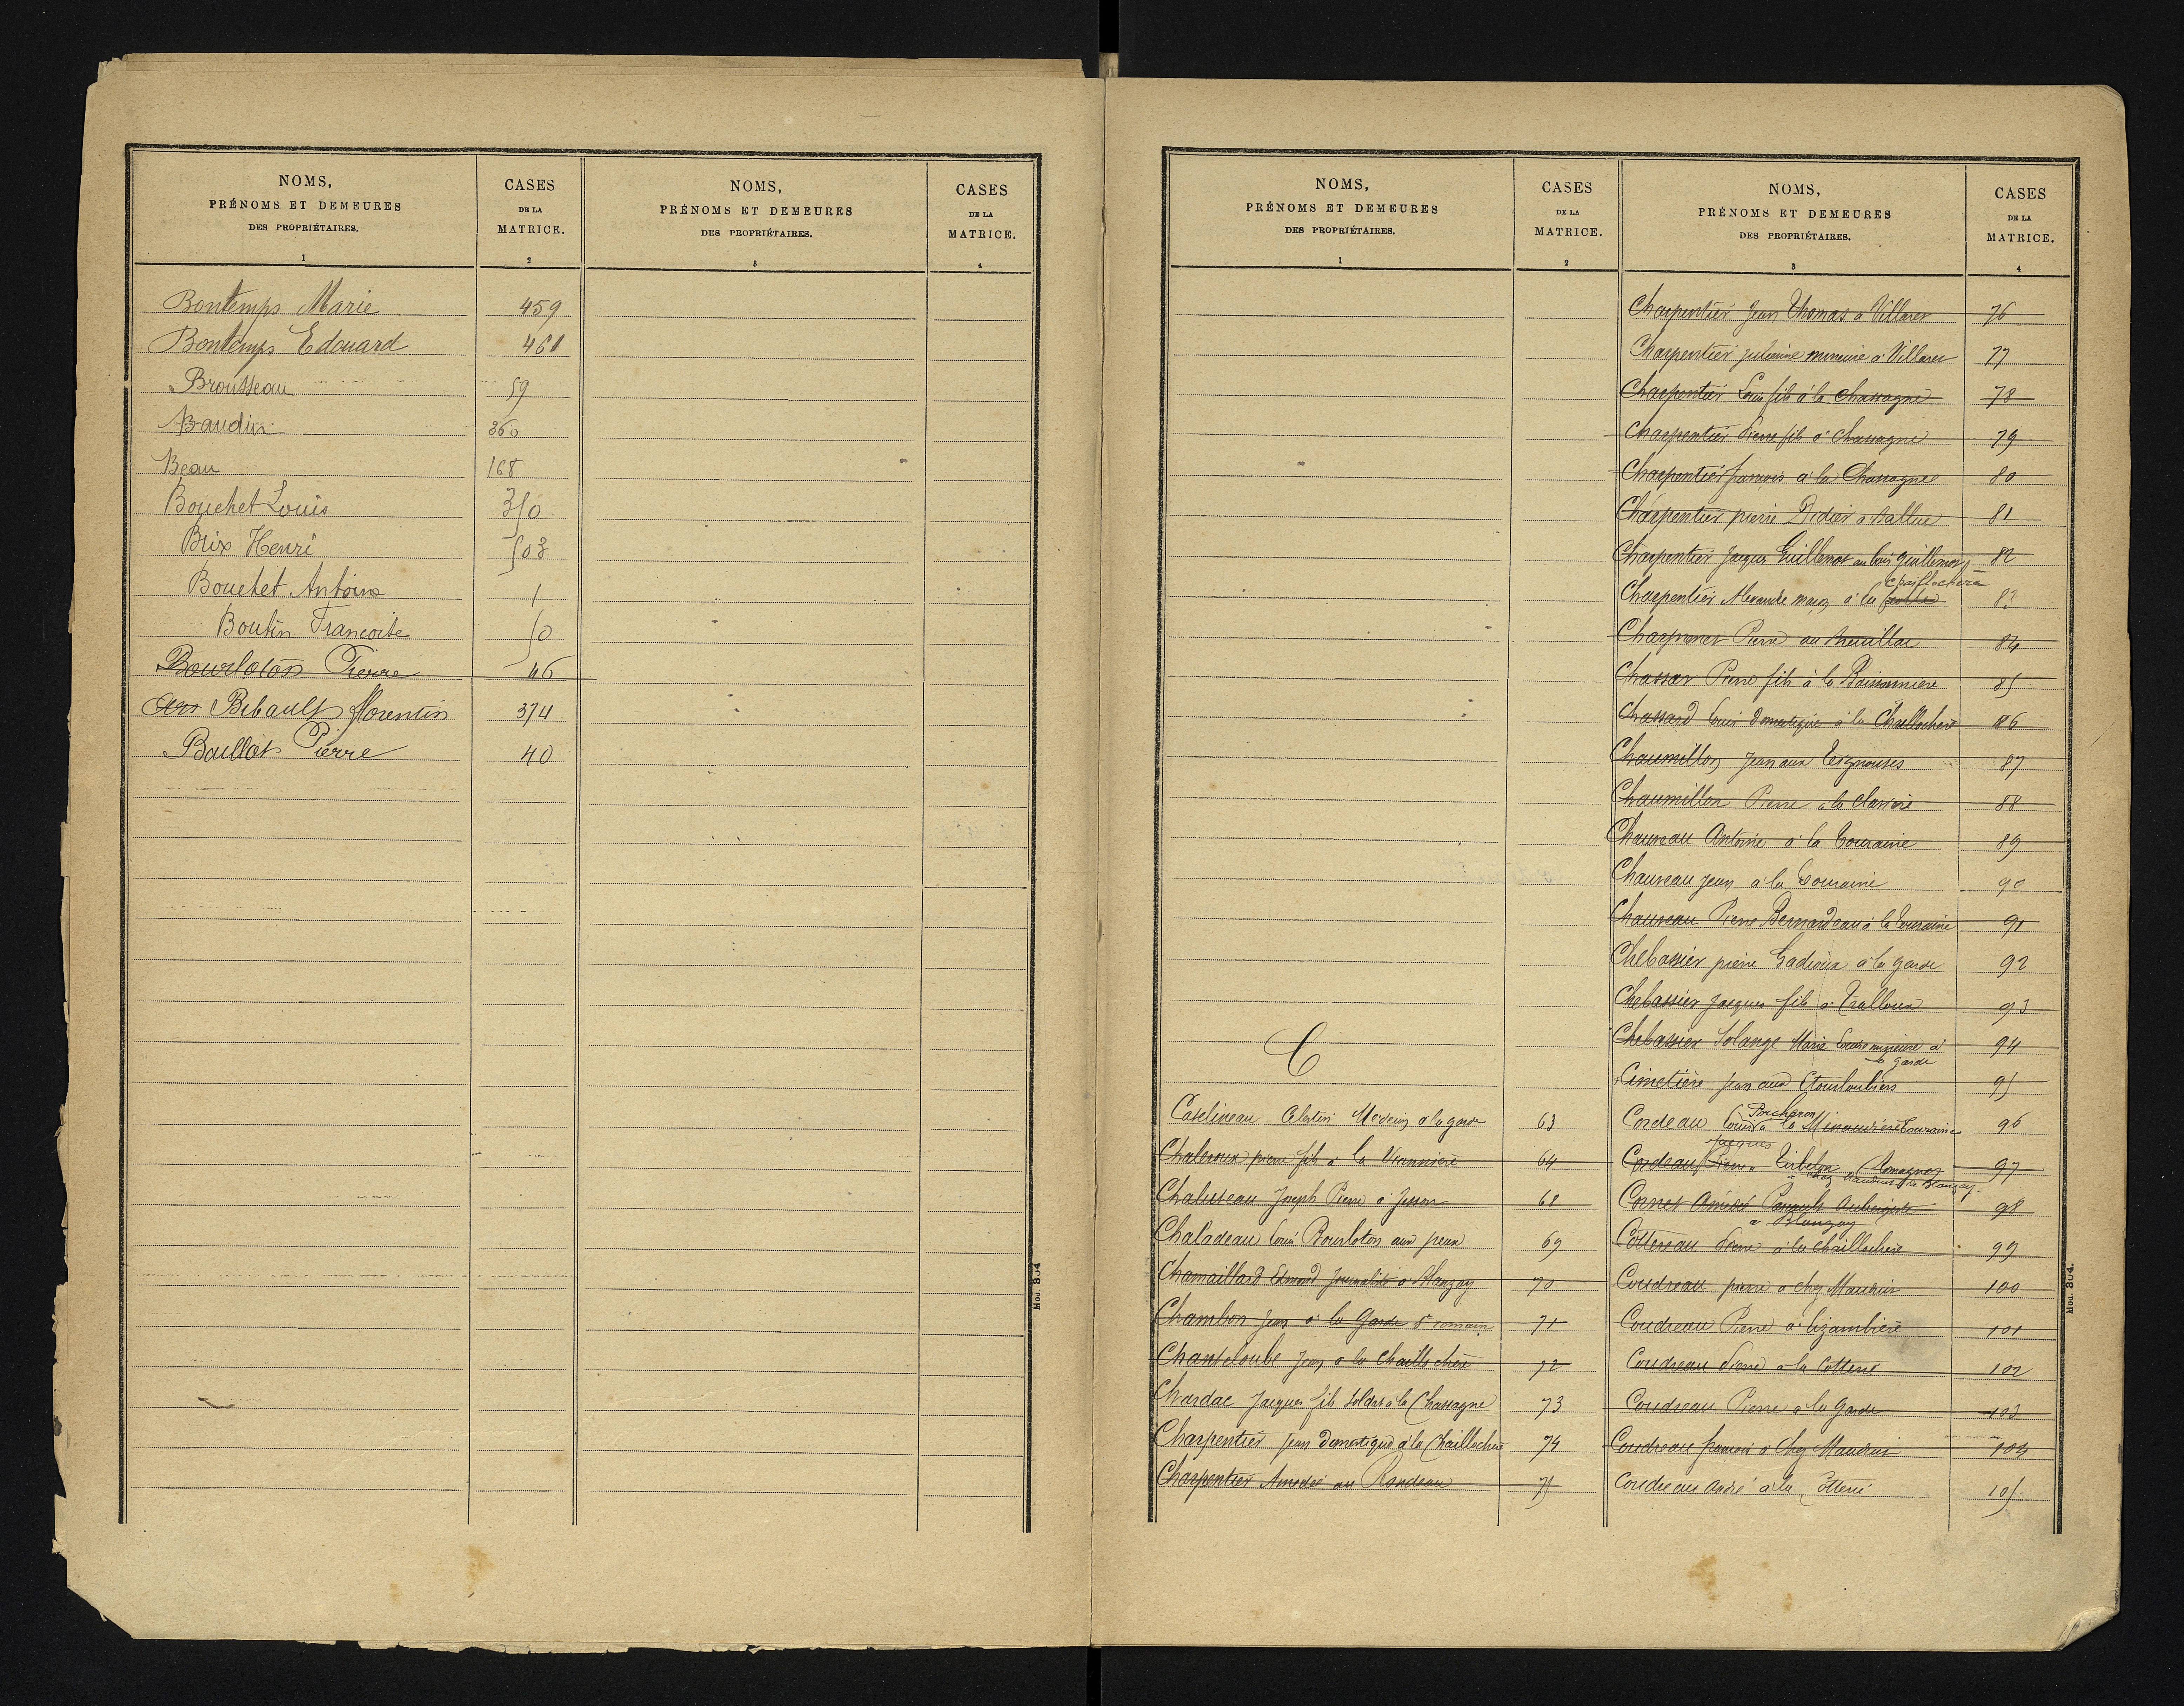 NOMS,
PRÉNOMS ET DEMEURES
DES PROPRIÉTAIRES.
1
CASES
DE LA
MATRICE.
2
NOMS,
PRÉNOMS ET DEMEURES
DES PROPRIÉTAIRES.
3
CASES
DE LA
MATRICE.
4
Bontemps Marie 459
Bontemps Edouard 461
Brousseau 59
Baudin 360
Beau 168
Bouchet Louis 350
Brix Henri 503
Bouchet Antoine 1
Boutin Francoise 50
Bourloton Pierre 46
Bibault florentin 374
Baillot Pierre 40
Mod. 304
NOMS,
PRÉNOMS ET DEMEURES
DES PROPRIÉTAIRES.
1
CASES
DE LA
MATRICE.
2
C
Catelineau Celestin Medecin à la garde 63
Chaleroux pierre fils à la 64
Chaluseau Joseph Pierre à Jesson 68
Chaladeau Louis Bourloton aux jeux 69
Chamaillard Edmond Journalier à Blanzay 70
Chambon Jean à la Garde St romain 71
Chanteloube Jean à la Chaillochere 72
Chardac Jacques fils soldat à la Chassagne 73
Charpentier Jean domestique à la Chaillochere 74
Charpentier Amedée au Rondeau 75
NOMS,
PRÉNOMS ET DEMEURES
DES PROPRIÉTAIRES.
3
CASES
DE LA
MATRICE.
4
Charpentier Jean Thomas à Villaret 76
Charpentier julienne mineure à Villaret 77
Charpentier Louis fils à la chassagne 78
Charpentier Pierre fils à Chassagne 79
Charpentier francois à la Chassagne 80
Charpentier pierre Didier à Ballue 81
Charpentier Jacques Guillemot au bois guillemot 82
Chaillochere
Charpentier Alexandre maçon à la 83
Pierre au 84
Chassar Pierre fils à la Boissonniere 85
Chassard Louis Domestique à la Chaillochere 86
Chaumillon Jean aux 87
Chaumillon Pierre à la 88
Chauveau Antoine à la Touraine 89
Chauveau Jean à la Touraine 90
Chauveau Pierre Bernardeau à la Touraine 91
Chebassier pierre Gadioux à la garde 92
Chebassier Jacques fils à Tralloux 93
Chebassier Solange Marie Louise mineure à 94
la garde
Cimetière jean aux 95
Porcheron
Cordeau Louis à la Minaudiere Touraine 96
Jacques
Cordeau Pierre Tirbelon à Romagnes 97
chez Mauduit de Blanzay
Cornet Amédé Aubergiste 98
à Blanzay
Cottereau Pierre à la Chaillochere 99
Coudreau pierre à chez Mauduit 100
Coudreau Pierre à 101
Coudreau Pierre à la Cotterie 102
Coudreau Pierre à la Garde 103
Coudreau francois à Chez Mauduit 104
Coudreau André à la Cotterie 105
Mod. 304.